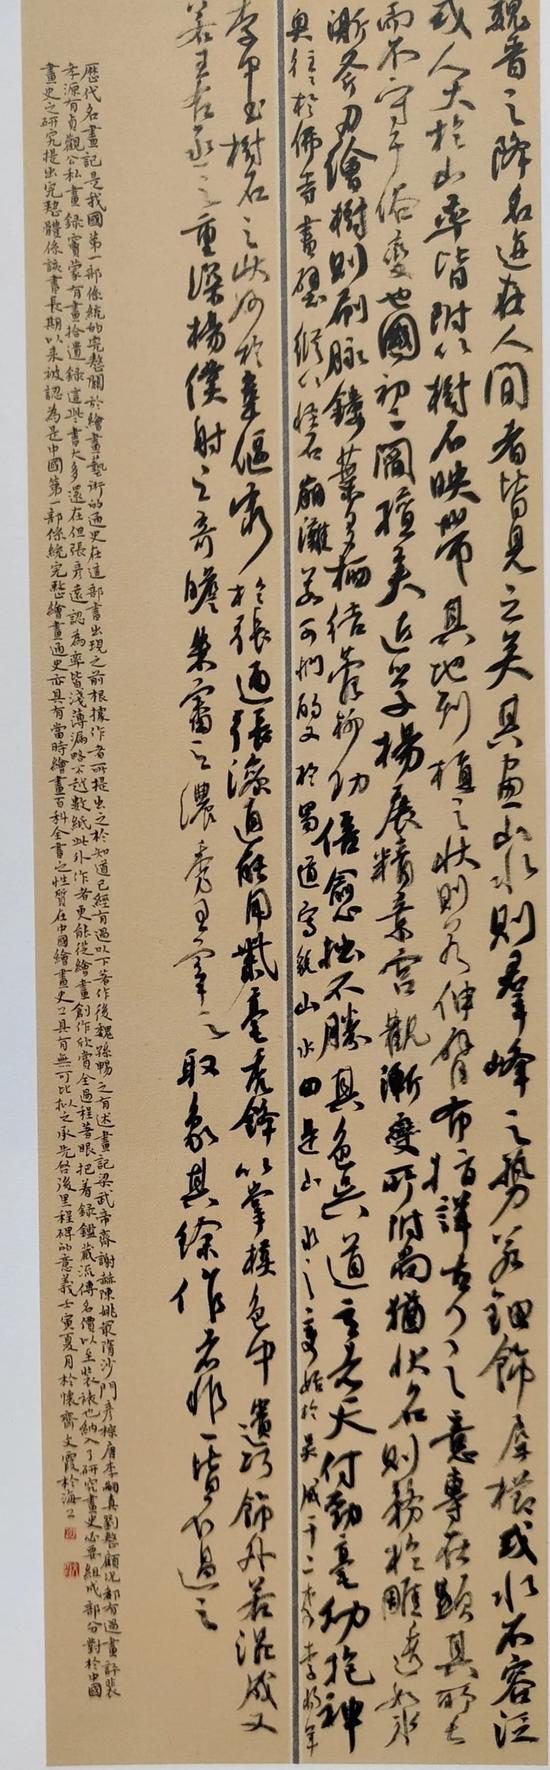 魏晉之降名迹在人間者皆見之矣其畫山水則羣峰之勢若鈿飾犀櫛或水不容泛
或人大於山率皆附以樹石映帶其地列植之狀則若伸臂布指詳古人之意專在顯其所長
而不守于俗變也國初二閻擅美匠學楊展精意宮觀漸變所附尚猶狀石則務於雕透如冰
澌斧刃繪樹則刷脉鏤葉多栖梧菀柳功倍愈拙不勝其色吳道玄者天付勁毫幼抱神
奧往往於佛寺畫壁縱以怪石崩灘若可捫酌又於蜀道寫貌山水由是山水之變始於吳成於二李李將軍
李中書樹石之狀妙於韋偃窮於張通張璪通能用紫毫禿鋒以掌摸色中遺巧飾外若混成又
若王右丞之重深楊僕射之奇贍朱審之濃秀王宰之取象其餘作者非一皆不過之
歷代名畫記是我國第一部系統的完整關於繪畫藝術的通史在這部書出現之前根據作者所提出之於知道已經有過以下著作後魏孫暢之有述畫記梁武帝齊謝赫陳姚最隋沙門彥悰唐李嗣真劉整顧況都有過畫評裴
孝源有貞觀公私畫録竇蒙有畫拾遺録這些書大多還在但張彥遠認為率皆淺薄漏略不越數紙此外作者更能從繪畫創作欣賞全過程著眼把着録鑑藏流傳名價以至裝裱也納入了研究畫史必要組成部分對於中國
畫史之研究提出完整體系該書長期以来被認為是中國第一部系統完整繪畫通史亦具有當時繪畫百科全書之性質在中國繪畫史上具有無可比拟之承先啓後里程碑的意義壬寅夏月於懷齋文霞於海上